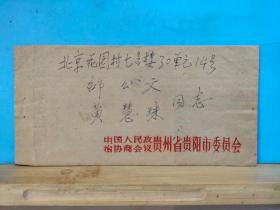 北京花园村七号楼30单元14号
文
黄慧珠 同志
中国人民政
治协商会议 贵州省贵阳市委员会